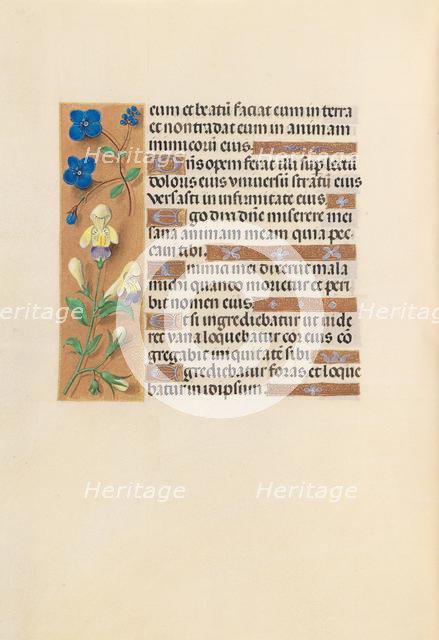 eum et beatū faciat eum in terra
et non tradat eum in animam
inimicorū eius.
Dn̄s opem ferat illi sup lectū
doloris eius vniuersū stratū eius
versasti in infirmitate eius.
Ego dixi dn̄e miserere mei
sana animam meam quia pec
caui tibi.
Inimici mei dixerūt mala
michi quando morietur et peri
bit nomen eius.
Et si ingrediebatur ut uide
ret vana loquebatur cor eius cō
gregabit iniquitatē sibi.
Egrediebatur foras et loque
batur in idipsum.
Heritage
Heritage
Heritage
Heritage
Heritage
Heritage
Heritage
Heritage